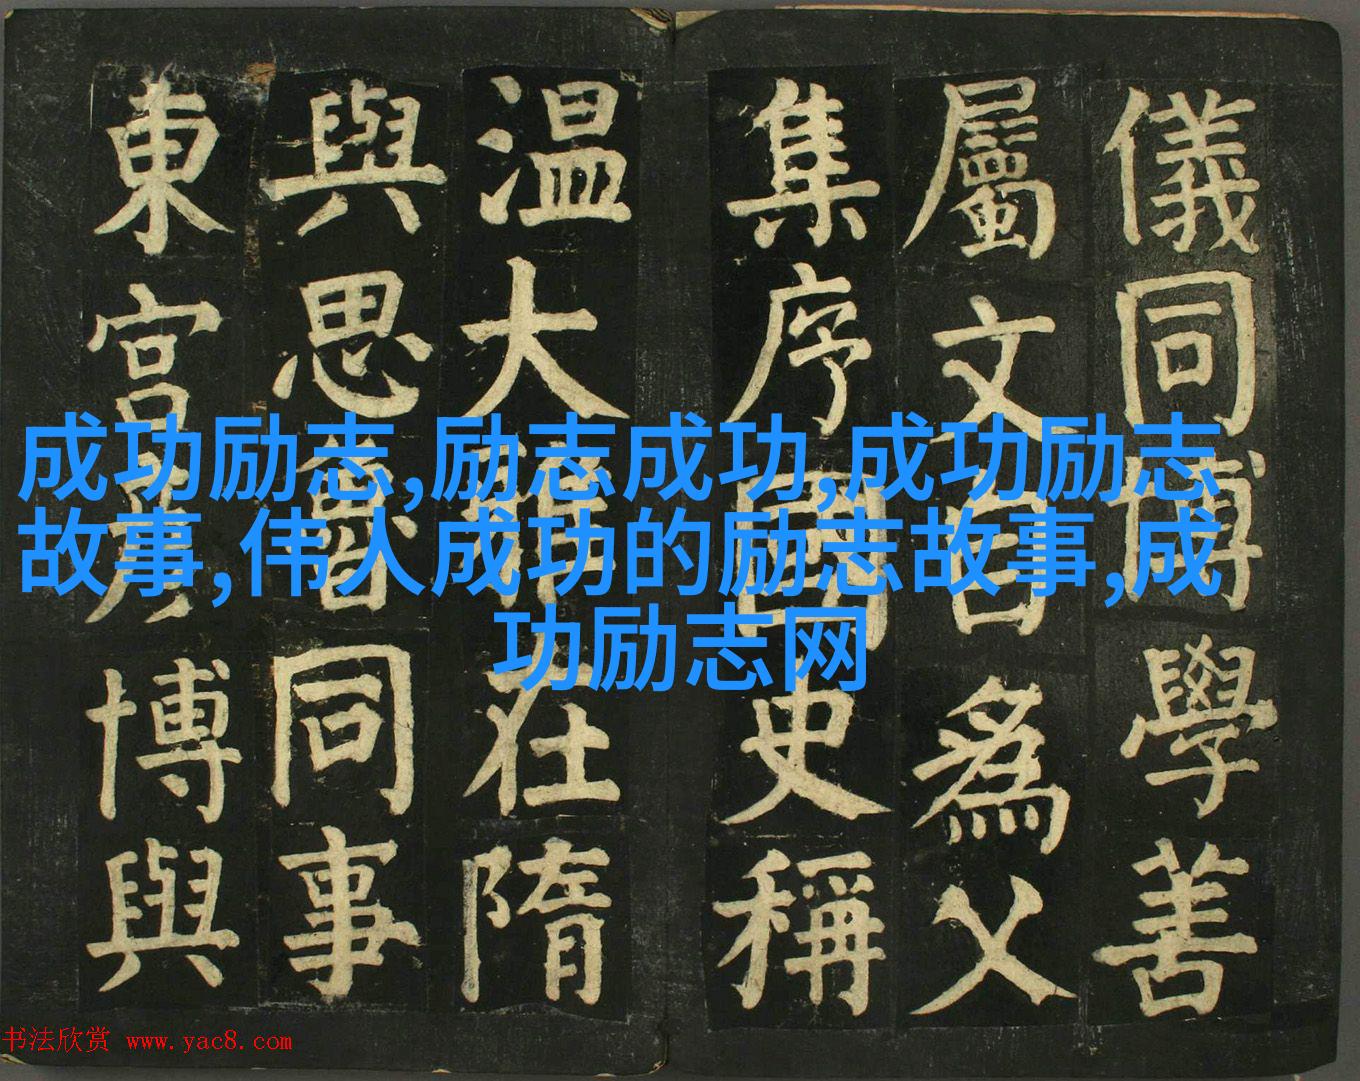 儀同博學善
屬文自爲父
集序國史稱
温大雅在隋
與思魯同事
東宫彦博與
成功励志,励志成功,成功励志
故事,伟人成功的励志故事,成
功励志网
书法欣赏 www.yac8.com